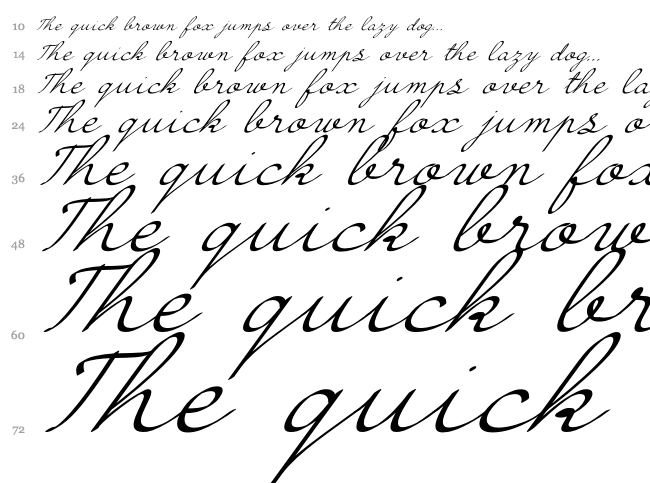 10 The quick brown fox jumps over the lazy dog...
14 The quick brown fox jumps over the lazy dog...
18 The quick brown fox jumps over the la
24 The quick brown fox jumps o
36 The quick brown fox
48 The quick brow
60 The quick br
72 The quick